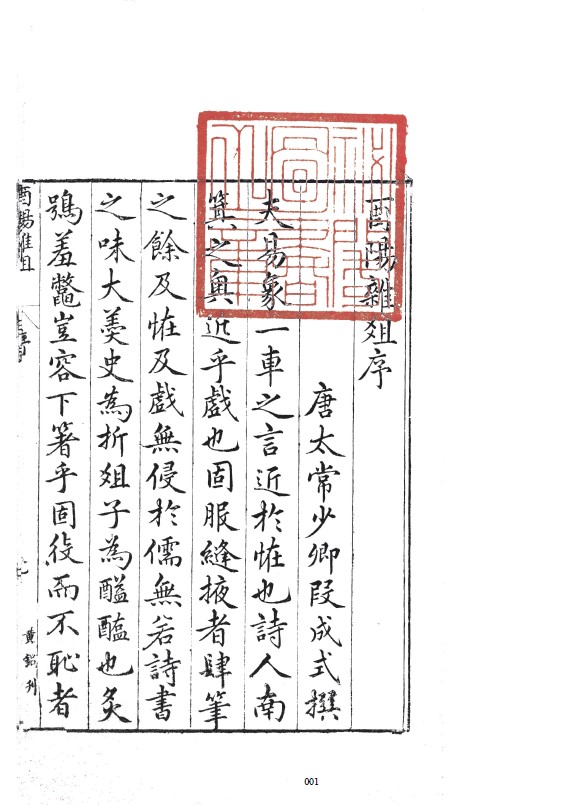 酉陽雜俎序
唐太常少卿段成式撰
夫易象一車之言近於恠也詩人南
箕之奧近乎戲也固服縫掖者肆筆
之餘及恠及戲無侵於儒無若詩書
之味大羹史為折俎子為醯醢也炙
鴞羞鼈豈容下箸乎固役而不恥者
酉陽雜俎
黃 刊
001